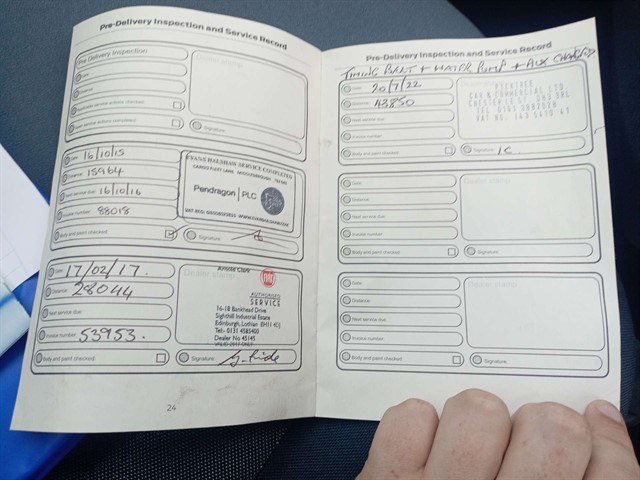 Pre-Delivery Inspection and Service Record
Pre Delivery Inspection
Date:
Distance:
service actions checked:
service actions completed:
Signature:
Date: 16/10/15
Distance: 15964
Next service due: 16/10/16
Invoice number: 88018
Body and paint checked:
Signature:
EVANS HALSHAW SERVICE COMPLETED
Pendragon PLC
Date: 17/02/17.
Distance: 28044
Next service due:
Invoice number: 53953.
Body and paint checked:
Signature:
Dealer stamp
Arnold Clark
FIAT
AUTHORISED
SERVICE
16-18 Bankhead Drive
Sighthill Industrial Estate
Edinburgh, Lothian EH11 4DJ
Tel:- 0131 4585400
Dealer No 45145
24
Pre-Delivery Inspection and Service Record
TIMING BELT + WATER PUMP + AUX
Date: 20/7/22
Distance: 43850
Next service due:
Invoice number:
Body and paint checked:
Signature:
CAR & COMMERCIAL LTD
Date:
Distance:
Next service due:
Invoice number:
Body and paint checked:
Dealer stamp
Signature:
Date:
Distance:
Next service due:
Invoice number:
Body and paint checked:
Dealer stamp
Signature: